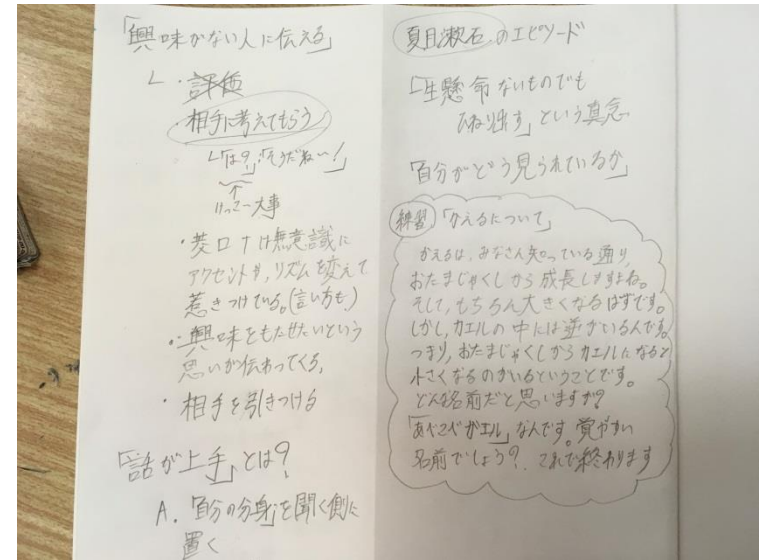 「興味がない人に伝える」
・評価
・相手に考えてもらう
「は?」「そうだねー!」
↑
けっこー大事
・菱ロナは無意識に
アクセントや、リズムを変えて
惹きつけている。(言い方も)
・興味をもたせたいという
思いが伝わってくる、
・相手を引きつける
「話が上手」とは?
A. 「自分の分身」を聞く側に
置く
夏目漱石 のエピソード
「一生懸命ないものでも
ひねり出す」という真念
「自分がどう見られているか」
練習 「かえるについて」
かえるは、みなさん知っている通り、
おたまじゃくしから成長しますよね。
そして、もちろん大きくなるはずです。
しかし、カエルの中には逆がいるんです。
つまり、おたまじゃくしからカエルになると
小さくなるのがいるということです。
どんな名前だと思いますか?
「あべこべガエル」なんです。覚やすい
名前でしょう? これで終わります